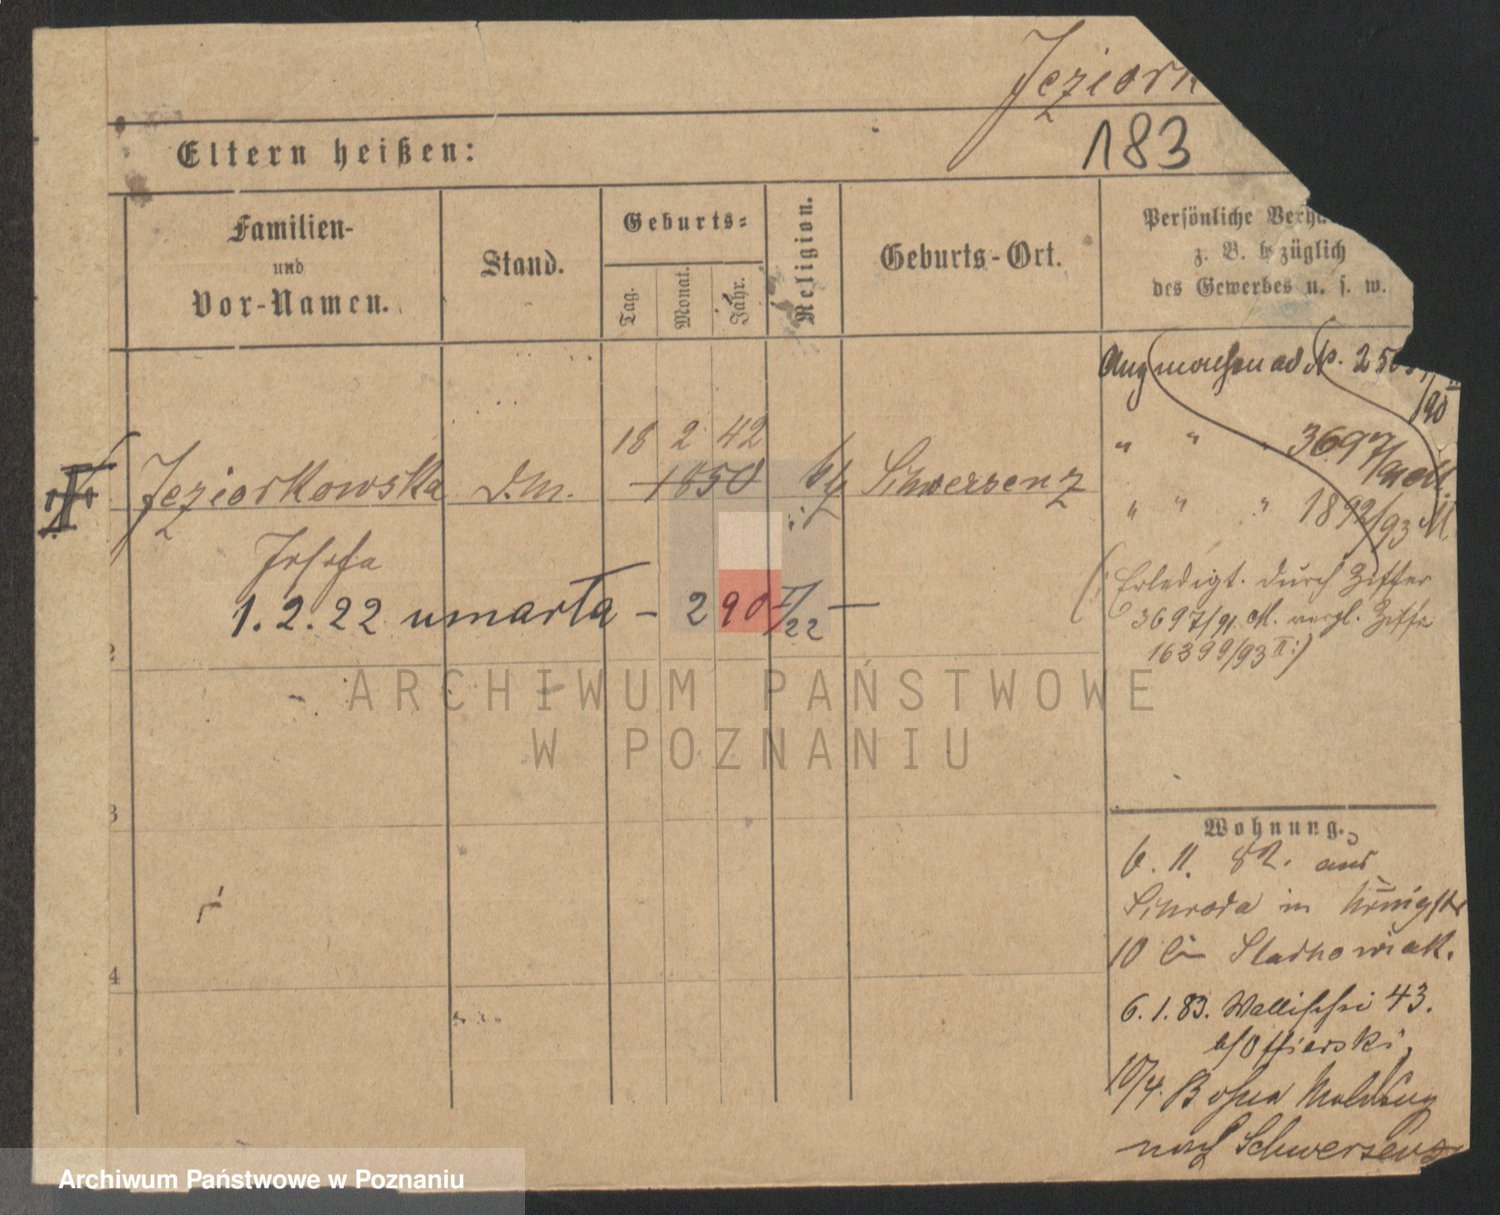 Jeziork
183
Eltern heißen:
Familien-
und
Vor-Namen.
Stand.
Geburts-
Tag.
Monat.
Jahr.
Religion.
Geburts-Ort.
Persönliche Verhä
z. B. bezüglich
des Gewerbes u. s. w.
ad No. 250
/90
" " " 3697/91 M.
" " " 1892/93 M
18 2 42
Jeziorkowska d.m. 1850 Schwersenz
Josefa
1.2.22 umarła - 290 I/22 -
(: Erledigt durch Ziffer
3697/91 M. vergl. Ziffer
16399/93 II :)
2
3
4
Wohnung.
6. 11. 82. aus
Schroda in Königstr
10 bei
6. 1. 83. Wallischei 43.
10/4. Ohne Meldung
nach Schwersenz
ARCHIWUM PAŃSTWOWE
W POZNANIU
Archiwum Państwowe w Poznaniu